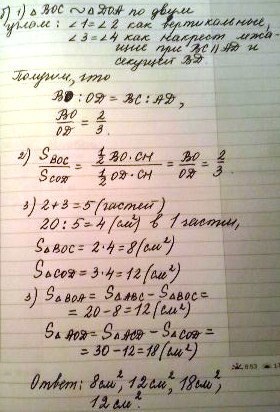 б) 1) △BOC ~ △DOA по двум
углам: ∠1=∠2 как вертикальные,
∠3=∠4 как накрест лежа-
щие при BC∥AD и
секущей BD
Получим, что
BO : OD = BC : AD,
BO/OD = 2/3.
2) S_BOC/S_COD = (1/2 BO·CH)/(1/2 OD·CH) = BO/OD = 2/3.
3) 2+3=5 (частей)
20:5=4 (см²) в 1 части,
S△BOC = 2·4=8 (см²)
S△COD = 3·4=12 (см²)
3) S△BOA = S△ABC − S△BOC =
= 20−8=12 (см²)
S△AOD = S△ACD − S△COD =
= 30−12=18 (см²)
Ответ: 8см², 12см², 18см²,
12см².